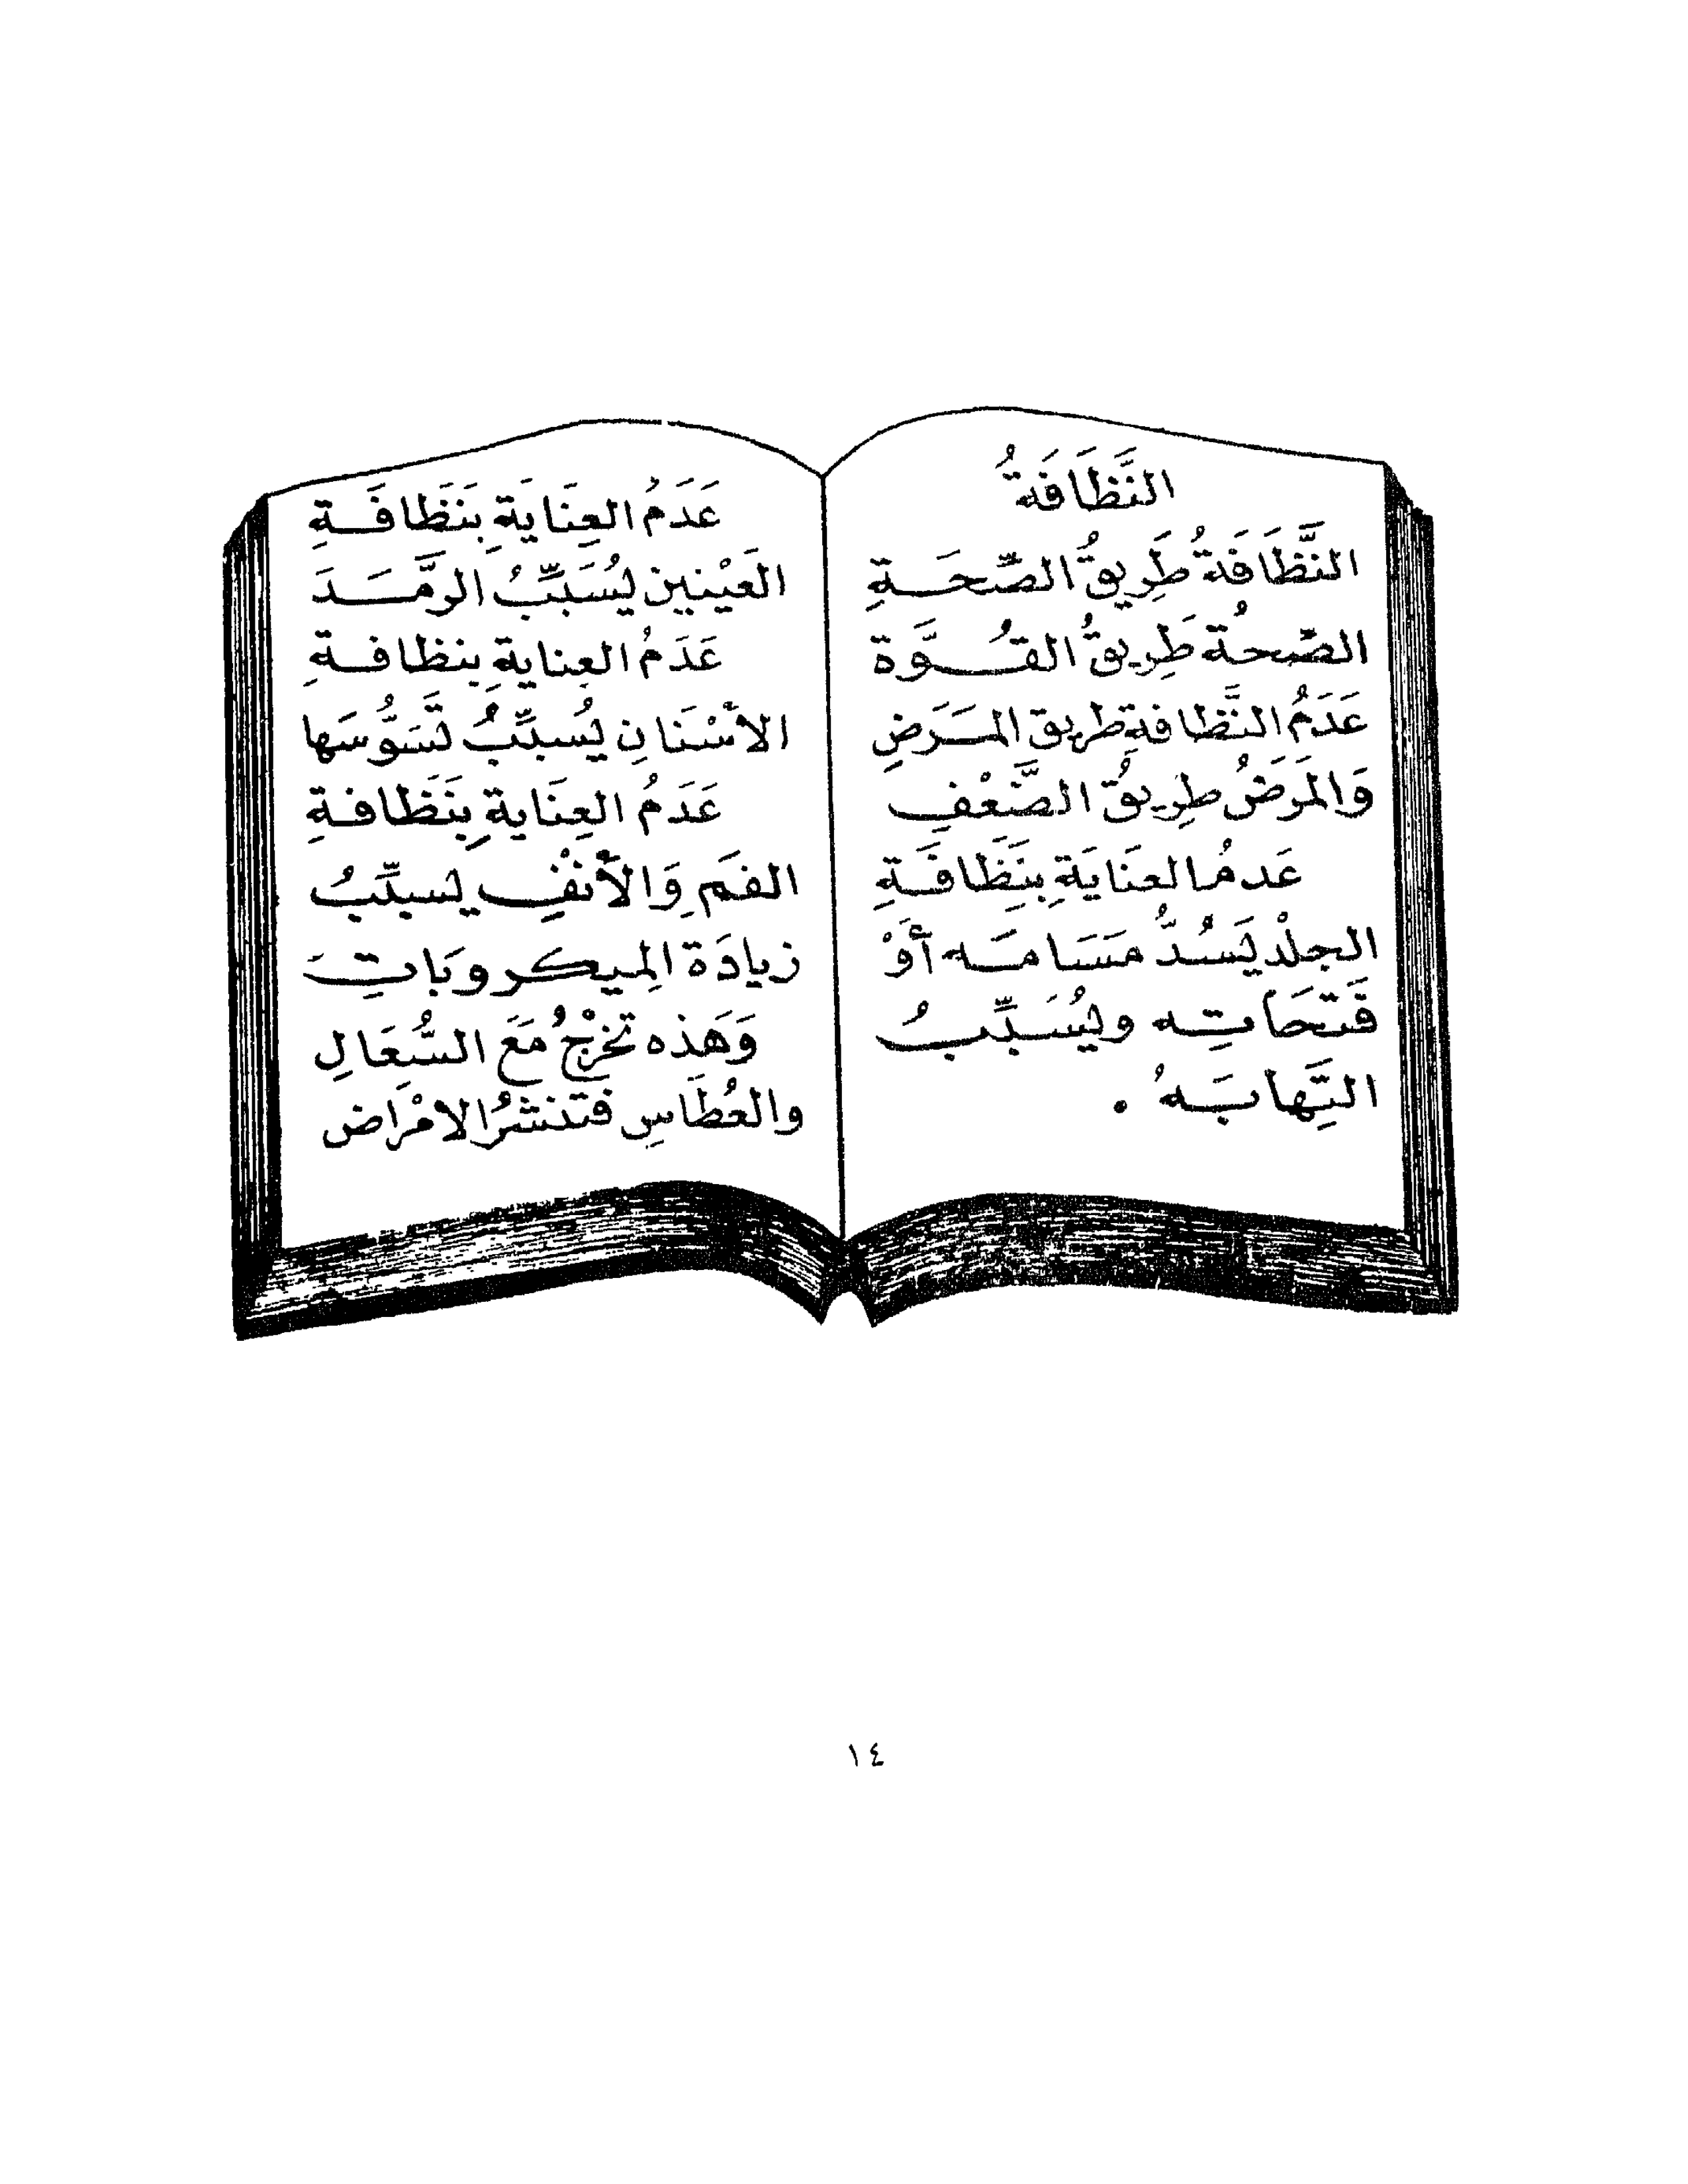 النَّظَافَةُ
النَّظَافَةُ طَرِيقُ الصِّحَةِ
الصِّحةُ طَرِيقُ القُوَّة
عَدَمُ النَّظافةِ طريق المَرَضِ
وَالمَرَضُ طرِيقُ الضَّعْفِ
عَدمُ العنَايَةِ بِنَظَافَةِ
الجلْد يَسُدُّ مَسَامَه أَوْ
فَتَحَاتِه ويُسَبِّبُ
التِهابَهُ .
عَدَمُ العِنَايَةِ بِنَظَافَةِ
العَيْنين يُسَبِّبُ الرَّمَدَ
عَدَمُ العِنايةِ بِنظافةِ
الأسْنَانِ يُسبِّبُ تَسَوُّسَها
عَدَمُ العِنَايةِ بِنَظَافةِ
الفَمِ وَالأَنْفِ يسبِّبُ
زيادَة المِيكروبَاتِ
وَهَذه تخْرُجُ مَعَ السُّعَالِ
والعُطَاسِ فتَنشُرُ الامْرَاض
١٤